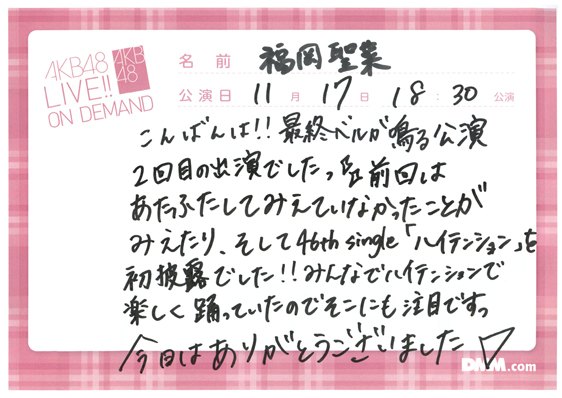 AKB48
LIVE!!
ON DEMAND
AKB
48
名前 福岡聖菜
公演日 11月17日 18:30公演
こんばんは!!最終ベルが鳴る公演
2回目の出演でしたっ前回は
あたふたしてみえていなかったことが
みえたり、そして46th single「ハイテンション」を
初披露でした!!みんなでハイテンションで
楽しく踊っていたのでそこにも注目ですっ
今日はありがとうございました♡
DMM.com